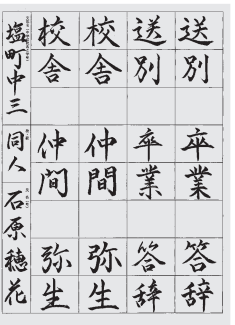 送別 卒業 答辞
送別 卒業 答辞
校舎 仲間 弥生
校舎 仲間 弥生
塩町中三 同人 石原穂花